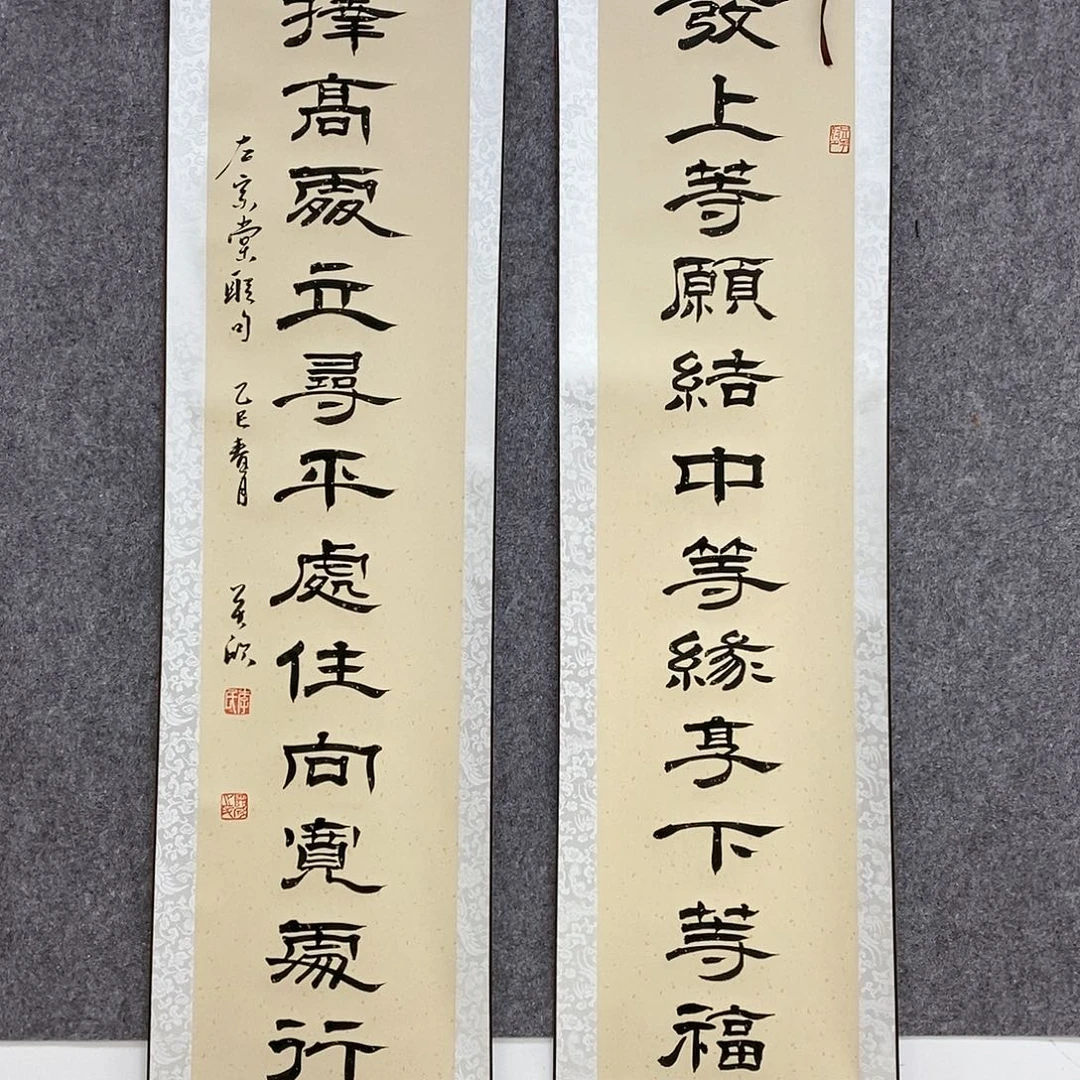 發上等願結中等緣享下等福
擇高處立尋平處住向寬處行
左宗棠聯句 乙巳春月